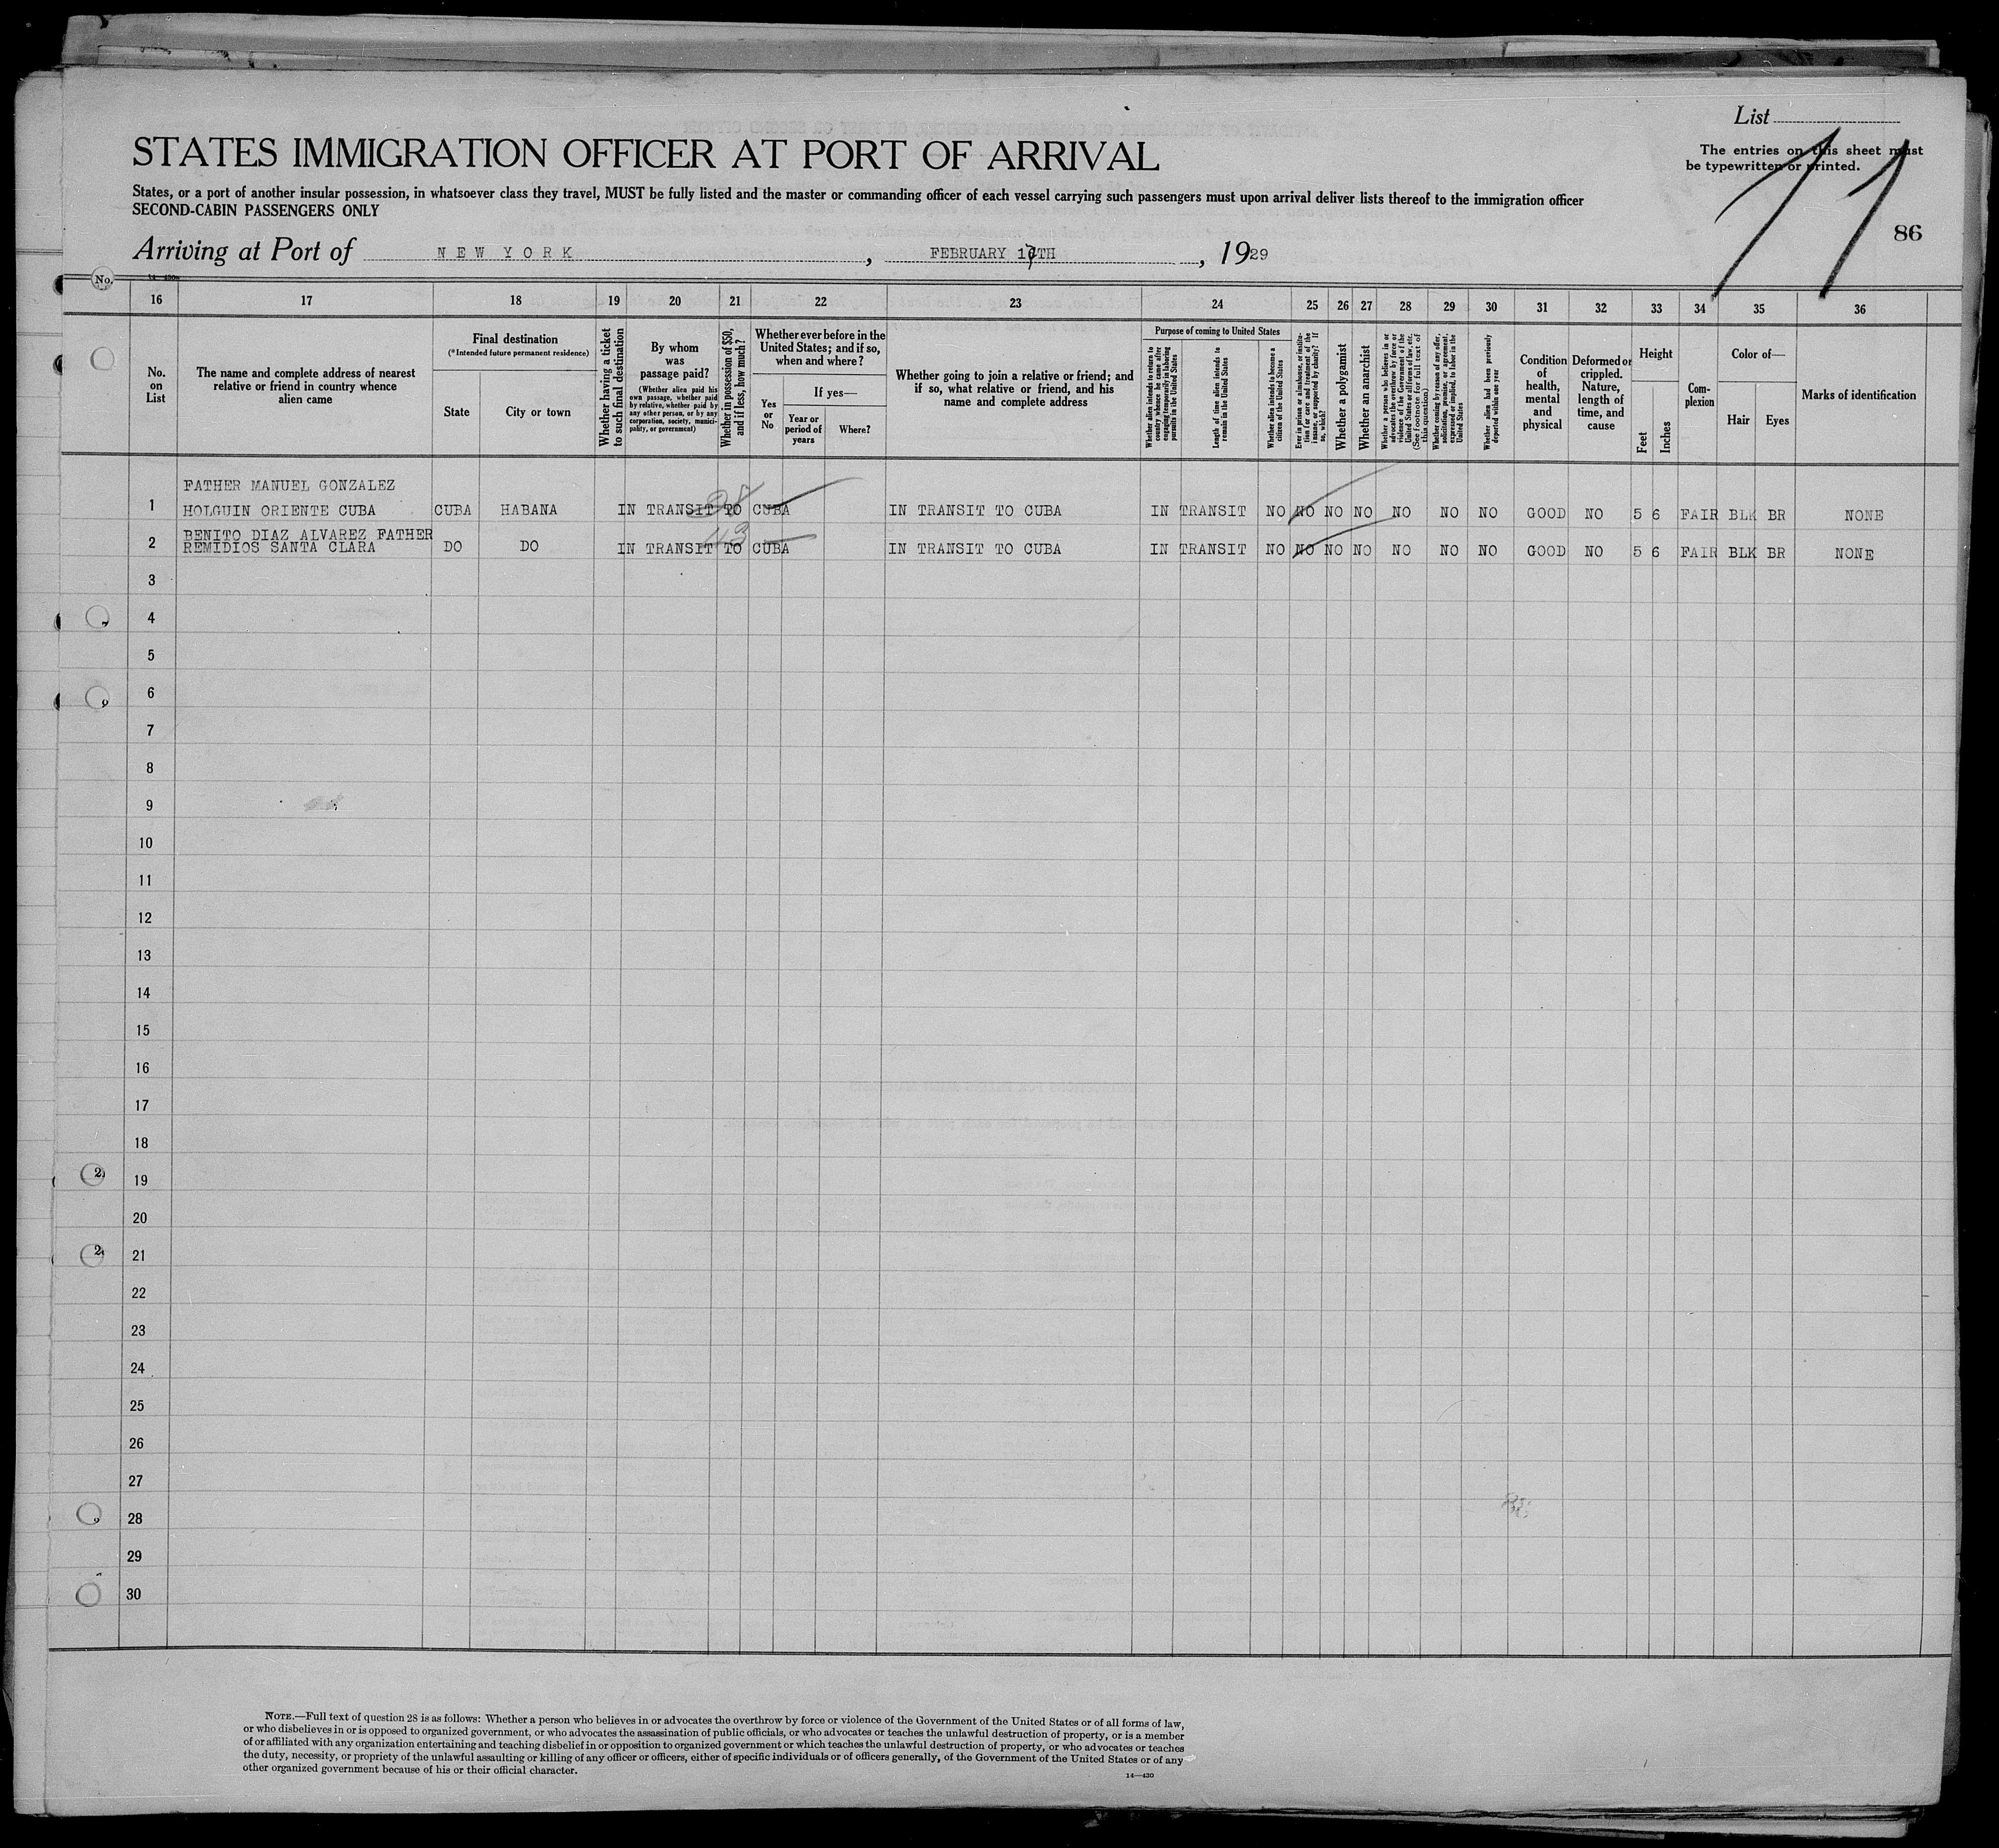 List
STATES IMMIGRATION OFFICER AT PORT OF ARRIVAL
The entries on this sheet must
be typewritten or printed.
States, or a port of another insular possession, in whatsoever class they travel, MUST be fully listed and the master or commanding officer of each vessel carrying such passengers must upon arrival deliver lists thereof to the immigration officer
SECOND-CABIN PASSENGERS ONLY
11
86
Arriving at Port of NEW YORK, FEBRUARY TH, 1929
No.
16 17 18 19 20 21 22 23 24 25 26 27 28 29 30 31 32 33 34 35 36
No. on List
The name and complete address of nearest relative or friend in country whence alien came
Final destination
(*Intended future permanent residence)
State
City or town
Whether having a ticket to such final destination
By whom was passage paid?
(Whether alien paid his own passage, whether paid by relative, whether paid by any other person, or by any corporation, society, municipality, or government)
Whether in possession of $50, and if less, how much?
Whether ever before in the United States; and if so, when and where?
Yes or No
If yes—
Year or period of years
Where?
Whether going to join a relative or friend; and if so, what relative or friend, and his name and complete address
Purpose of coming to United States
Whether alien intends to return to country whence he came after engaging temporarily in laboring pursuits in the United States
Length of time alien intends to remain in the United States
Whether alien intends to become a citizen of the United States
Ever in prison or almshouse, or institution for care and treatment of the insane, or supported by charity? If so, which?
Whether a polygamist
Whether an anarchist
Whether a person who believes in or advocates the overthrow by force or violence of the Government of the United States or all forms of law, etc. (See footnote for full text of this question)
Whether coming by reason of any offer, solicitation, promise, or agreement, expressed or implied, to labor in the United States
Whether alien had been previously deported within one year
Condition of health, mental and physical
Deformed or crippled. Nature, length of time, and cause
Height
Feet
Inches
Complexion
Color of—
Hair
Eyes
Marks of identification
FATHER MANUEL GONZALEZ
1 HOLGUIN ORIENTE CUBA CUBA HABANA IN TRANSIT TO CUBA IN TRANSIT TO CUBA IN TRANSIT NO NO NO NO NO NO NO GOOD NO 5 6 FAIR BLK BR NONE
28
BENITO DIAZ ALVAREZ FATHER
2 REMIDIOS SANTA CLARA DO DO IN TRANSIT TO CUBA IN TRANSIT TO CUBA IN TRANSIT NO NO NO NO NO NO NO GOOD NO 5 6 FAIR BLK BR NONE
43
3
4
5
6
7
8
9
10
11
12
13
14
15
16
17
18
19
20
21
22
23
24
25
26
27
28
29
30
NOTE.—Full text of question 28 is as follows: Whether a person who believes in or advocates the overthrow by force or violence of the Government of the United States or of all forms of law,
or who disbelieves in or is opposed to organized government, or who advocates the assassination of public officials, or who advocates or teaches the unlawful destruction of property, or is a member
of or affiliated with any organization entertaining and teaching disbelief in or opposition to organized government or which teaches the unlawful destruction of property, or who advocates or teaches
the duty, necessity, or propriety of the unlawful assaulting or killing of any officer or officers, either of specific individuals or of officers generally, of the Government of the United States or of any
other organized government because of his or their official character.
14—430